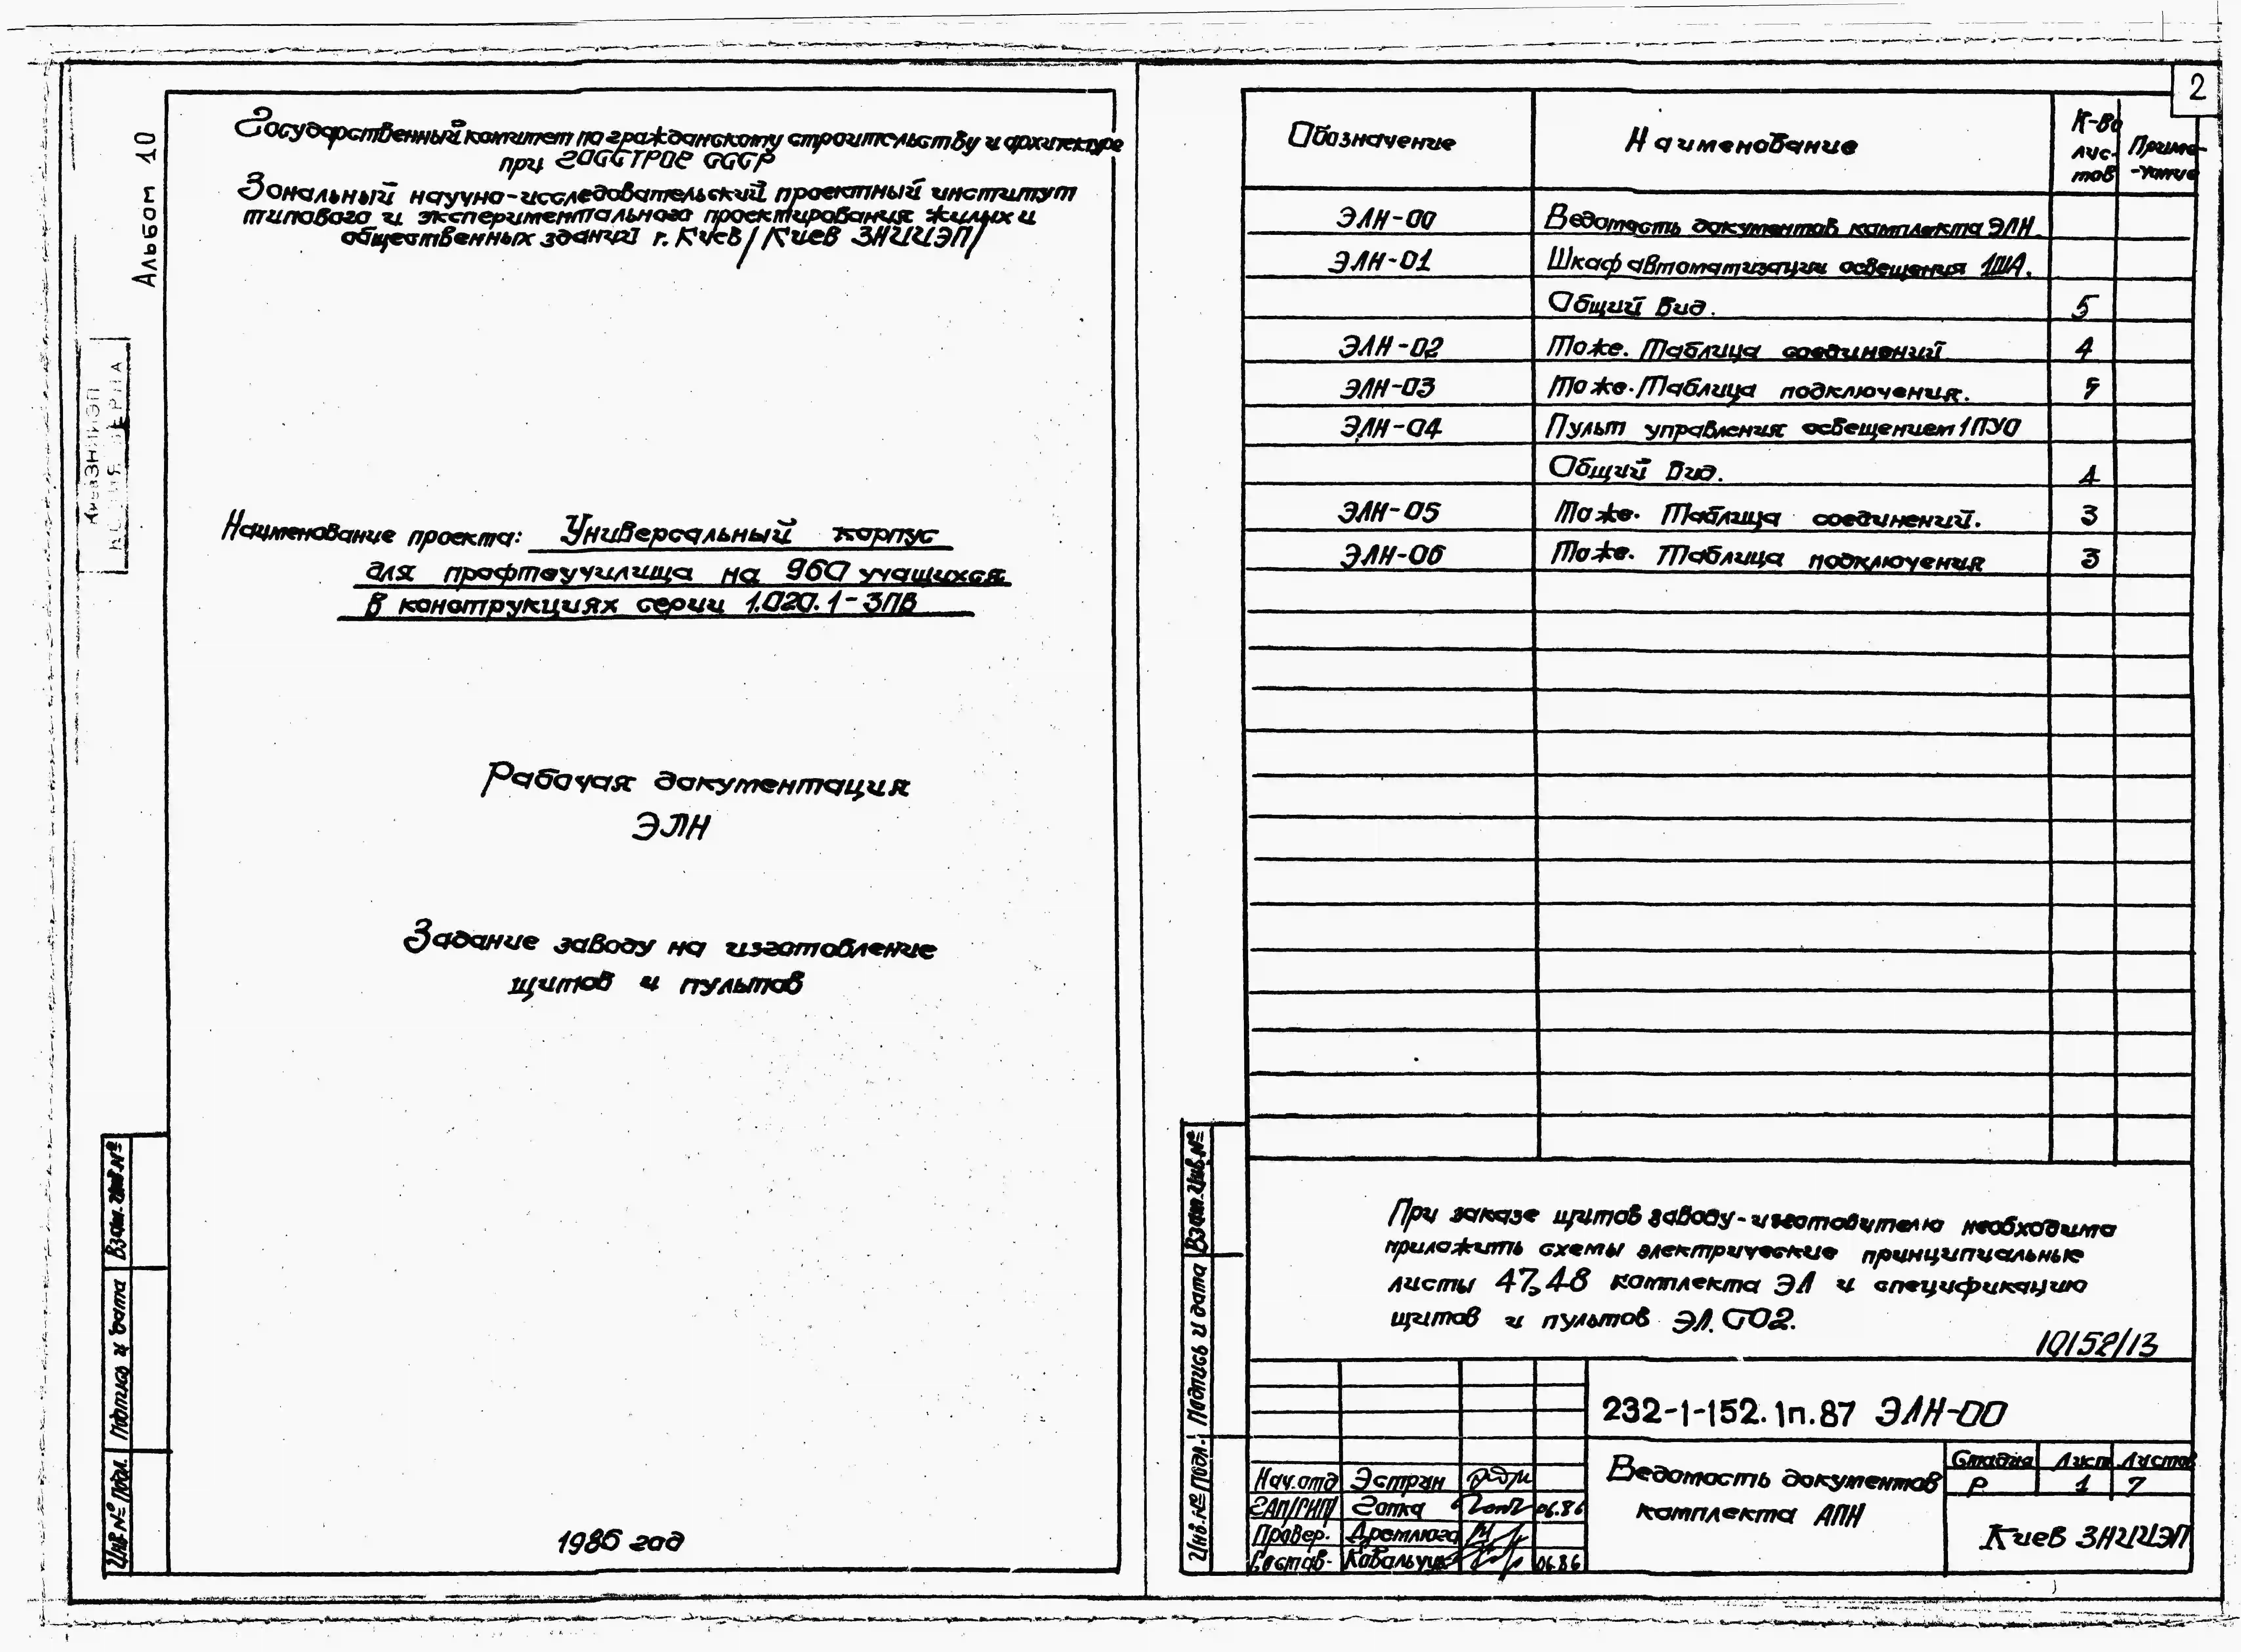 Альбом 10
Государственный комитет по гражданскому строительству и архитектуре
при ГОССТРОЕ СССР
Зональный научно-исследовательский проектный институт
типового и экспериментального проектирования жилых и
общественных зданий г. Киев /Киев ЗНИИЭП/
КиевЗНИИЭП
Наименование проекта: Универсальный корпус
для профтеучилища на 960 учащихся
в конструкциях серии 1.020.1-3ПВ
Рабочая документация
ЭЛН
Задание заводу на изготовление
щитов и пультов
1986 год
Взам. инв.№
Подпись и дата
Инв.№ подл.
2
Обозначение Наименование К-во листов Приме-чание
ЭЛН-00 Ведомость документов комплекта ЭЛН.
ЭЛН-01 Шкаф автоматизации освещения 1ША.
Общий вид. 5
ЭЛН-02 То же. Таблица соединений 4
ЭЛН-03 То же. Таблица подключения.
ЭЛН-04 Пульт управления освещением 1ПУО
Общий вид. 4
ЭЛН-05 То же. Таблица соединений. 3
ЭЛН-06 То же. Таблица подключения 3
При заказе щитов заводу-изготовителю необходимо
приложить схемы электрические принципиальные
листы 47,48 комплекта ЭЛ и спецификацию
щитов и пультов ЭЛ.СО2.
10152/13
232-1-152.1п.87 ЭЛН-00
Ведомость документов
комплекта АПН
Стадия Лист Листов
Р 1 7
Киев ЗНИИЭП
Нач.отд Эстрин
ГАП/ГИП/ Готка 06.86
Провер. Дремлюга
Состав. Ковальчук 06.86
Взам.инв.№
Подпись и дата
Инв.№ подл.